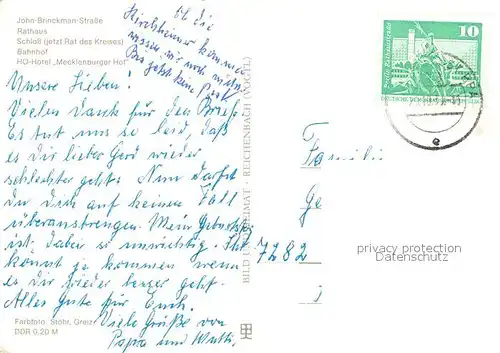 John-Brinckman-Straße
Rathaus
Schloß (jetzt Rat des Kreises)
Bahnhof
HO-Hotel „Mecklenburger Hof"
Ob die
Kirchheimer kommen
wissen wir noch nicht
Bis jetzt keine Post
Unsere Lieben!
Vielen Dank für den Brief.
Es tut uns so leid, daß
es Dir lieber Gerd wieder
schlechter geht. Nun darfst
Du Dich auf keinen Fall
überanstrengen. Mein Geburtstag
ist dabei so unwichtig. Ihr
könnt ja kommen wenn
es Dir wieder besser geht.
Alles Gute für Euch.
Viele Grüße von
Papa und Mutti.
Farbfoto: Stöhr, Greiz
DDR 0,20 M
BILD UND HEIMAT · REICHENBACH (VOGTL)
10
DEUTSCHE DEMOKRATISCHE
Familie
Ge
7282
privacy protection
Datenschutz